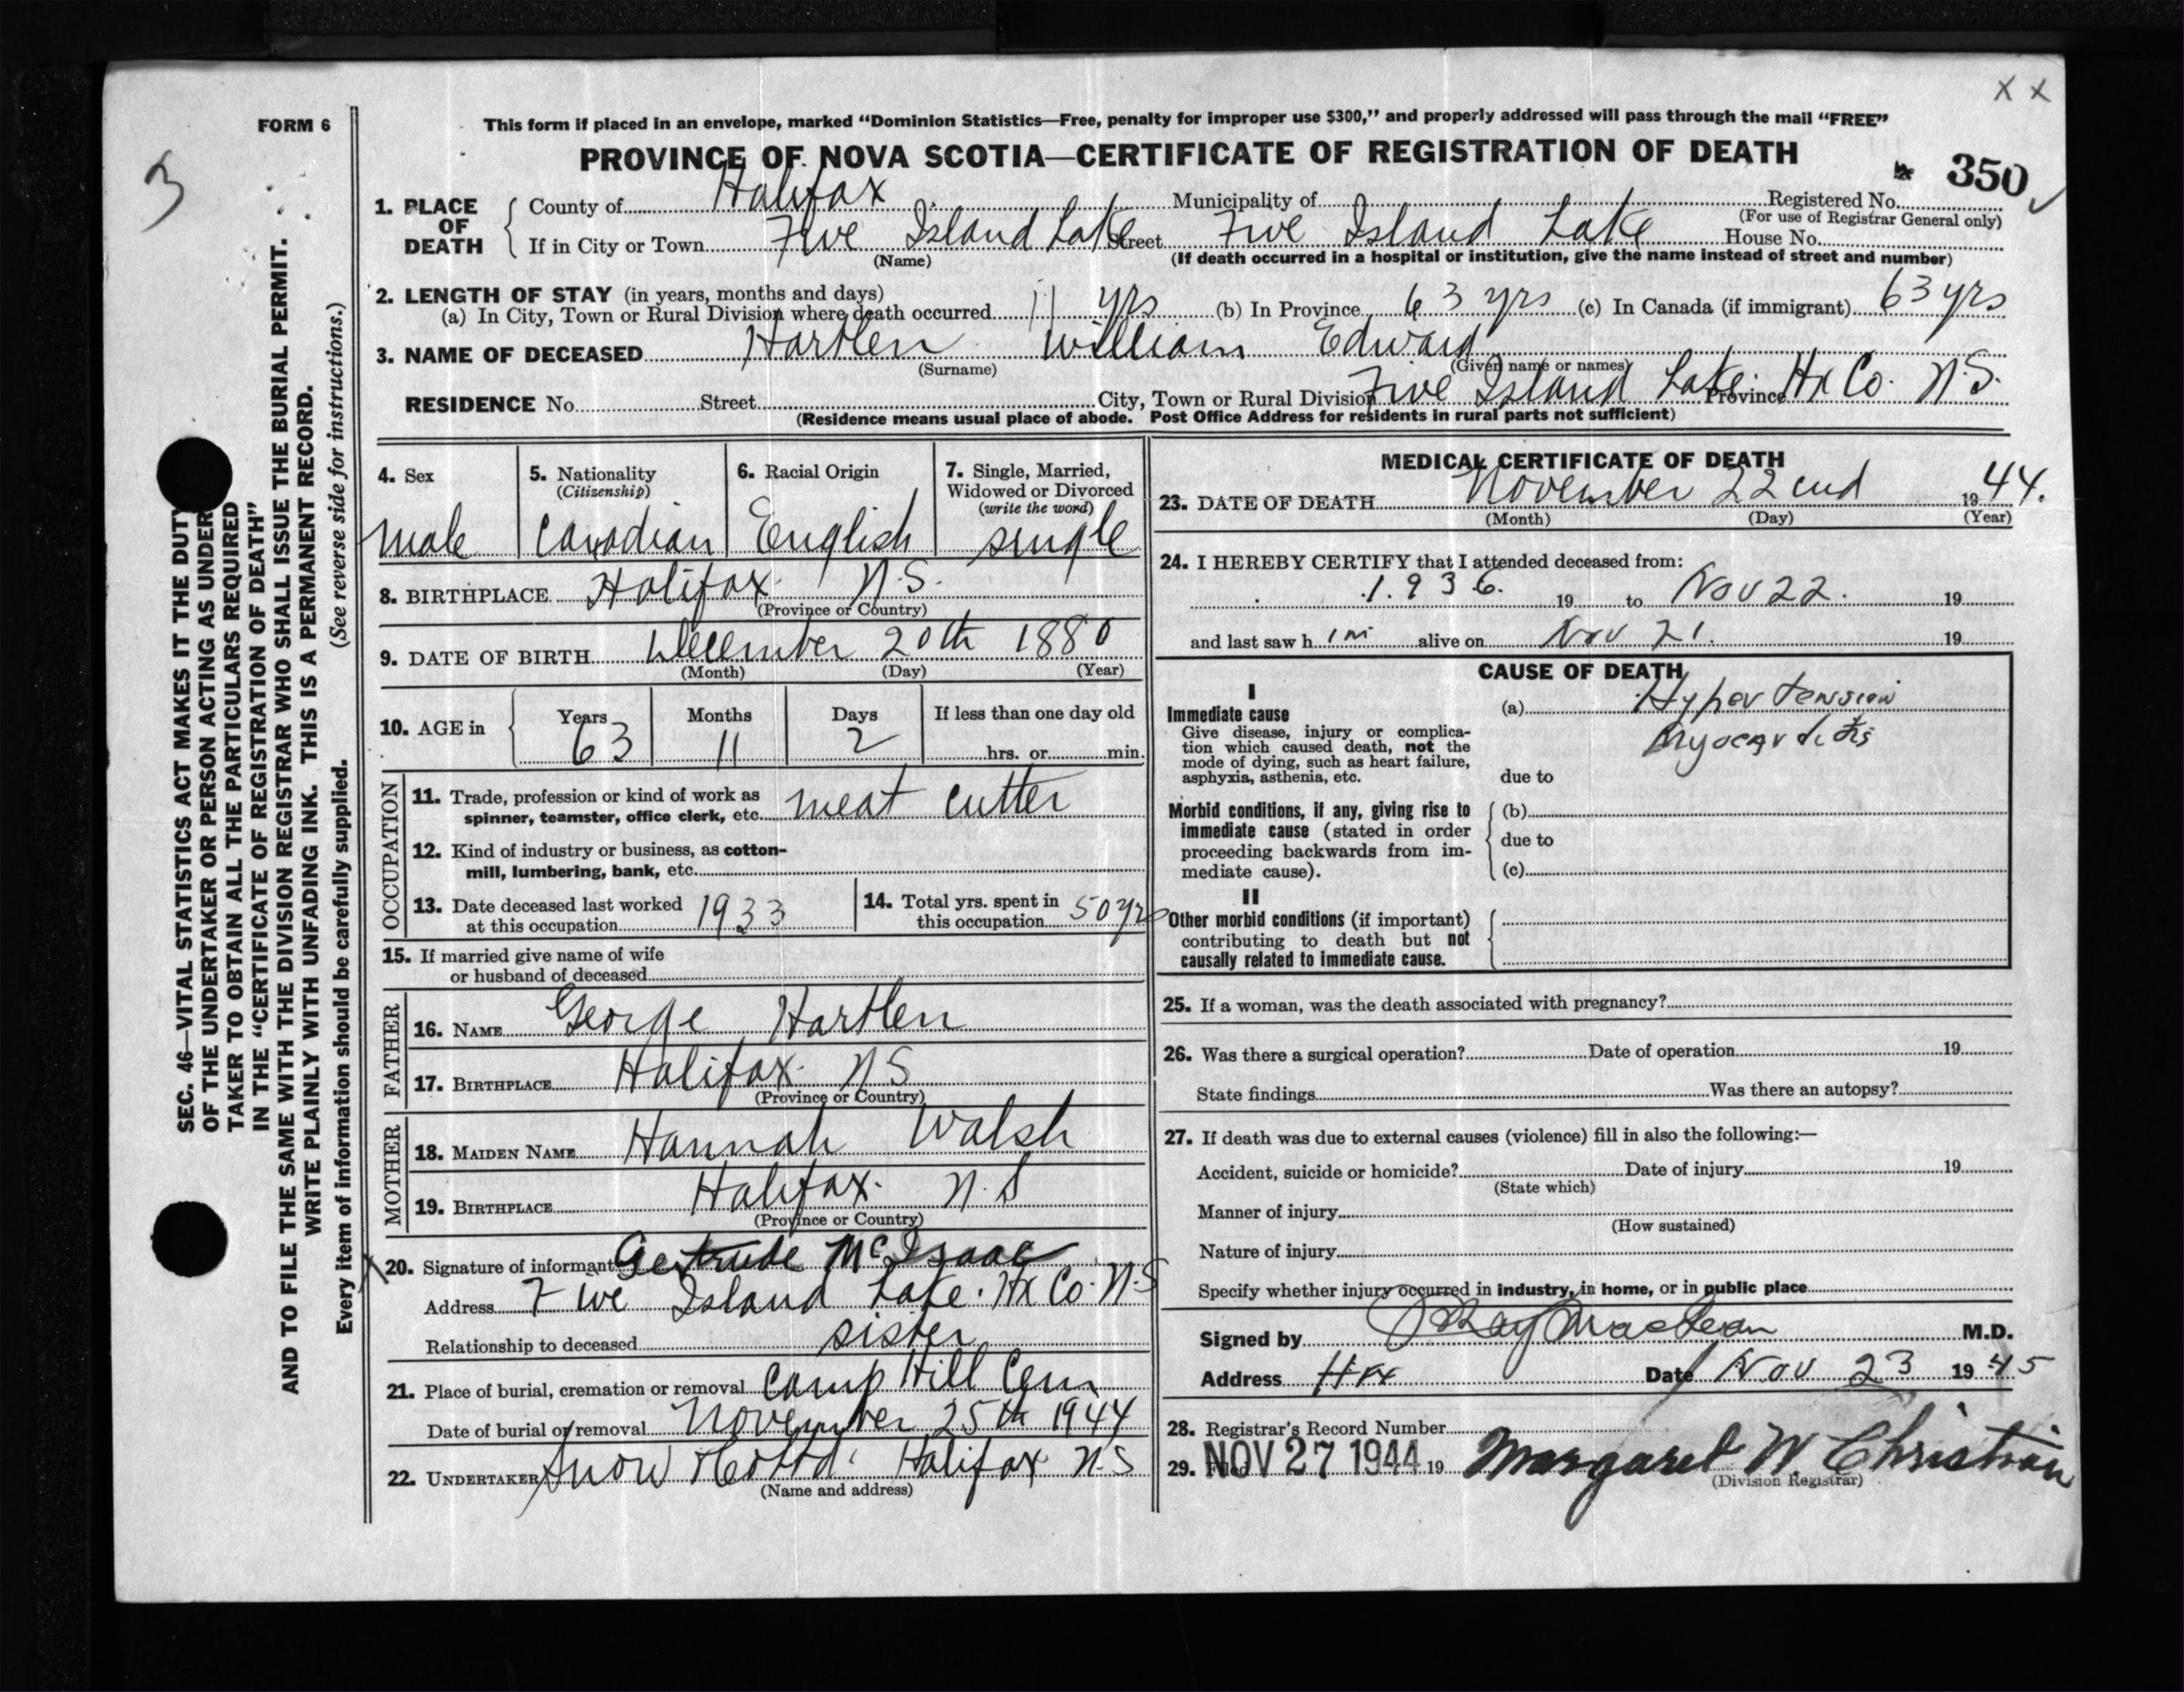 X X
FORM 6
3
This form if placed in an envelope, marked “Dominion Statistics—Free, penalty for improper use $300,” and properly addressed will pass through the mail “FREE”
PROVINCE OF NOVA SCOTIA—CERTIFICATE OF REGISTRATION OF DEATH
350
1. PLACE OF DEATH
County of Halifax Municipality of Registered No.
(For use of Registrar General only)
If in City or Town Five Island Lake Street Five Island Lake House No.
(Name) (If death occurred in a hospital or institution, give the name instead of street and number)
2. LENGTH OF STAY (in years, months and days)
(a) In City, Town or Rural Division where death occurred 11 yrs (b) In Province 63 yrs (c) In Canada (if immigrant) 63 yrs
3. NAME OF DECEASED Hartlen William Edward
(Surname) (Given name or names)
RESIDENCE No. Street City, Town or Rural Division Five Island Lake. Province Hx Co. N.S.
(Residence means usual place of abode. Post Office Address for residents in rural parts not sufficient)
SEC. 46—VITAL STATISTICS ACT MAKES IT THE DUTY
OF THE UNDERTAKER OR PERSON ACTING AS UNDER
TAKER TO OBTAIN ALL THE PARTICULARS REQUIRED
IN THE “CERTIFICATE OF REGISTRATION OF DEATH”
AND TO FILE THE SAME WITH THE DIVISION REGISTRAR WHO SHALL ISSUE THE BURIAL PERMIT.
WRITE PLAINLY WITH UNFADING INK. THIS IS A PERMANENT RECORD.
Every item of information should be carefully supplied. (See reverse side for instructions.)
4. Sex
male
5. Nationality
(Citizenship)
Canadian
6. Racial Origin
English
7. Single, Married,
Widowed or Divorced
(write the word)
single
8. BIRTHPLACE Halifax N.S.
(Province or Country)
9. DATE OF BIRTH December 20th 1880
(Month) (Day) (Year)
10. AGE in Years Months Days If less than one day old
63 11 2 hrs. or min.
OCCUPATION
11. Trade, profession or kind of work as
spinner, teamster, office clerk, etc. meat cutter
12. Kind of industry or business, as cotton-
mill, lumbering, bank, etc.
13. Date deceased last worked
at this occupation 1933
14. Total yrs. spent in
this occupation 50 yrs
15. If married give name of wife
or husband of deceased
FATHER
16. NAME George Hartlen
17. BIRTHPLACE Halifax. N S
(Province or Country)
MOTHER
18. MAIDEN NAME Hannah Walsh
19. BIRTHPLACE Halifax. N.S
(Province or Country)
20. Signature of informant Gertrude McIsaac
Address Five Island Lake. Hx Co. N.S
Relationship to deceased sister
21. Place of burial, cremation or removal Camp Hill Cem
Date of burial or removal November 25th 1944
22. UNDERTAKER Snow Halifax N.S
(Name and address)
MEDICAL CERTIFICATE OF DEATH
23. DATE OF DEATH November 22nd 1944.
(Month) (Day) (Year)
24. I HEREBY CERTIFY that I attended deceased from:
1936. 19 to Nov 22. 19
and last saw h im alive on Nov 21. 19
CAUSE OF DEATH
I
Immediate cause
Give disease, injury or complica-
tion which caused death, not the
mode of dying, such as heart failure,
asphyxia, asthenia, etc.
(a) Hypertension
Myocarditis
due to
Morbid conditions, if any, giving rise to
immediate cause (stated in order
proceeding backwards from im-
mediate cause).
(b)
due to
(c)
II
Other morbid conditions (if important)
contributing to death but not
causally related to immediate cause.
25. If a woman, was the death associated with pregnancy?
26. Was there a surgical operation? Date of operation 19
State findings Was there an autopsy?
27. If death was due to external causes (violence) fill in also the following:—
Accident, suicide or homicide? Date of injury 19
(State which)
Manner of injury
(How sustained)
Nature of injury
Specify whether injury occurred in industry, in home, or in public place
Signed by MacLean M.D.
Address Hfx Date Nov 23 1945
28. Registrar's Record Number
29. NOV 27 1944 19 Margaret W. Christian
(Division Registrar)